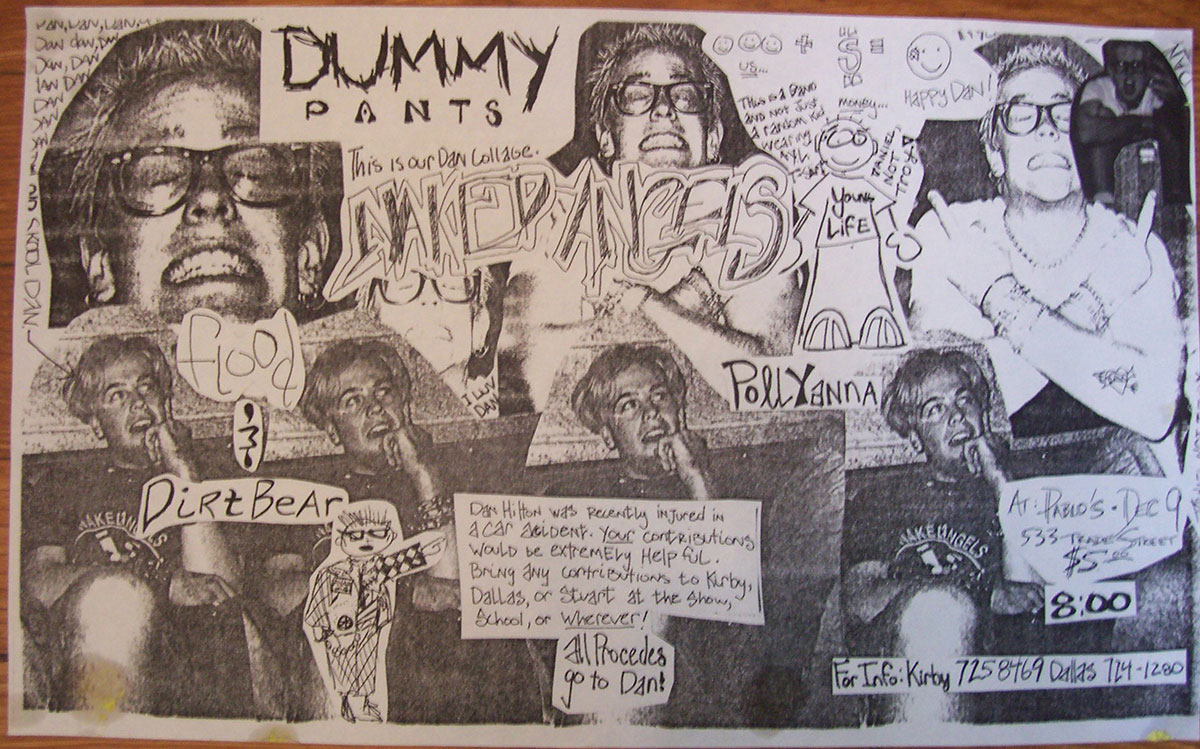 DAN, DAN, DAN,
Dan dan, DAN
Dan, DAN
DAN DAN
DAN
DUMMY
PANTS
This is our Dan Collage.
NAKED ANGELS
us...
+
$
=
money...
Happy Dan!
This is a Band
and not just
a random kid
wearing
Daniel
not
Troy
Young
Life
SKOOL DAN.
flood
I LUV
DAN
PollYanna
DirtBear
Dan Hilton was recently injured in
a car acident. Your contributions
would be extremely helpful.
Bring any contributions to Kirby,
Dallas, or Stuart at the show,
School, or wherever!
All Procedes
go to Dan!
NAKED ANGELS
NAKED ANGELS
At: Pablo's - Dec 9
533 - Trade Street
$5.00
8:00
For Info: Kirby 7258469 Dallas 724-1280